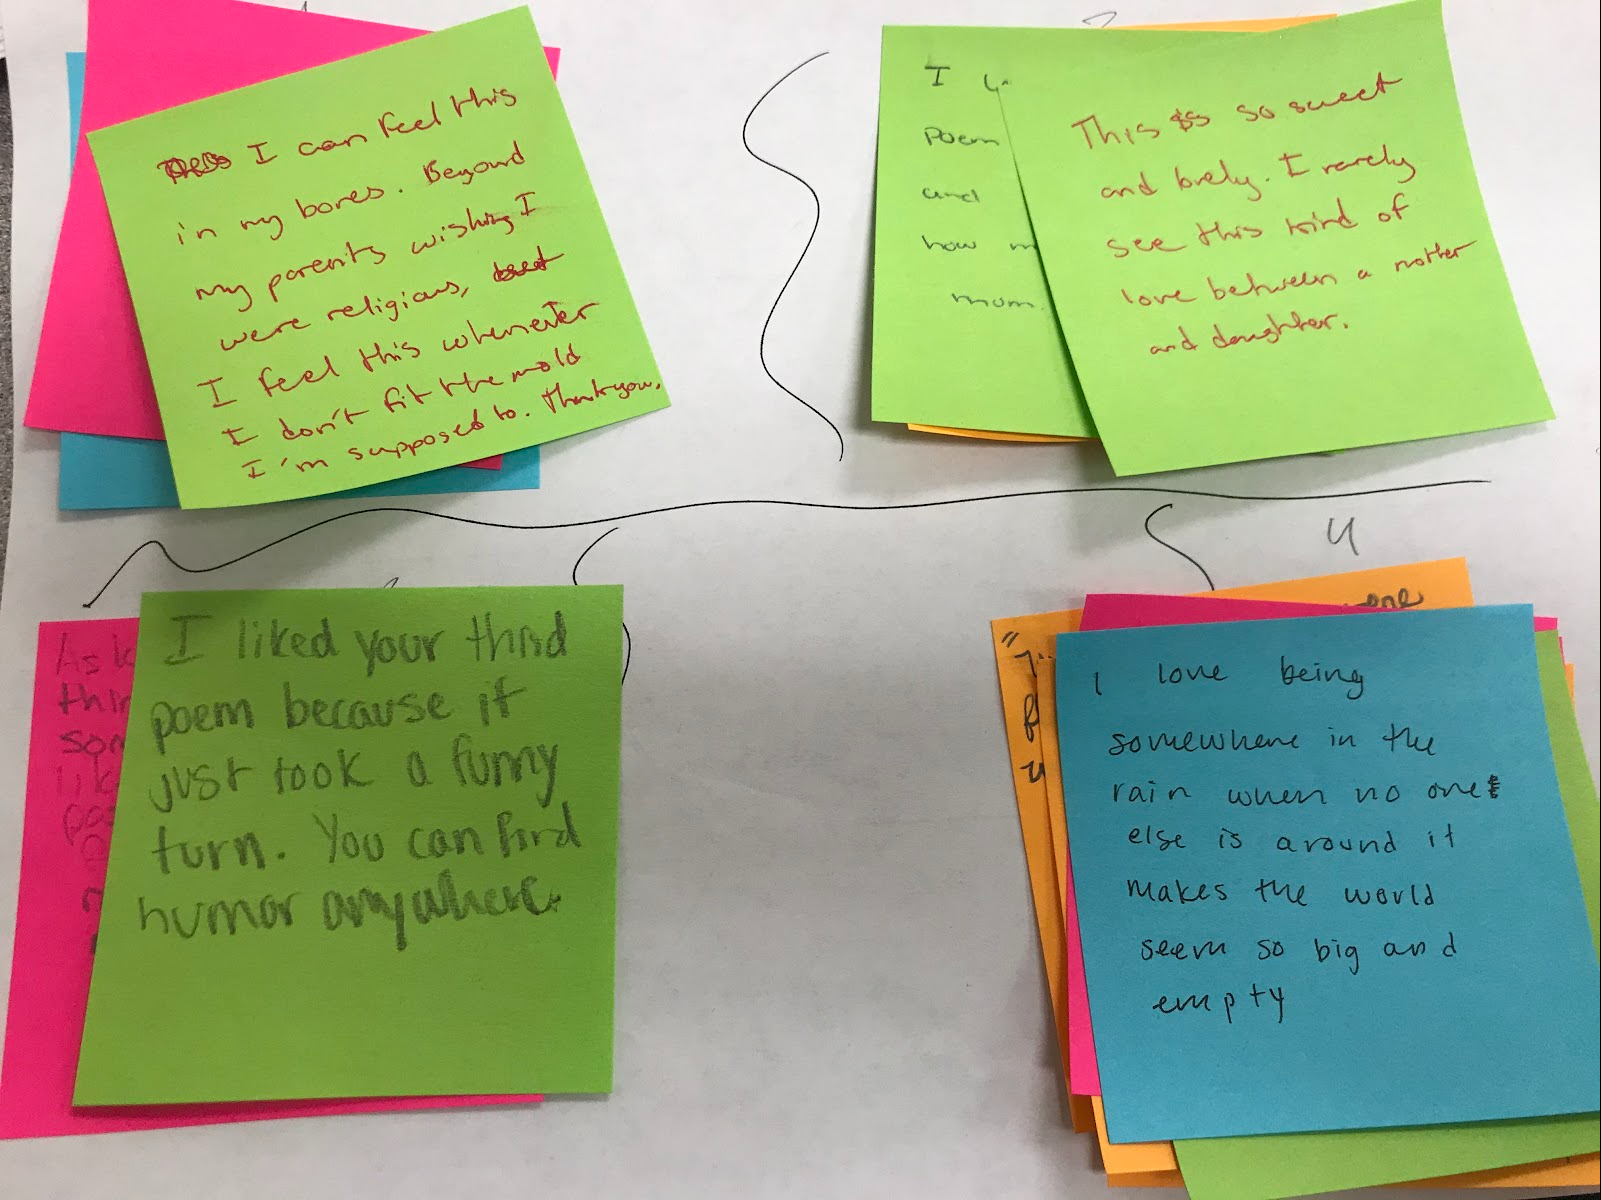 I can feel this
in my bones. Beyond
my parents wishing I
were religious,
I feel this whenever
I don't fit the mold
I'm supposed to. Thank you.
I
Poem
and
how
mom.
This is so sweet
and lovely. I rarely
see this kind of
love between a mother
and daughter.
4
As
I liked your third
poem because it
just took a funny
turn. You can find
humor anywhere.
I love being
somewhere in the
rain when no one
else is around it
makes the world
seem so big and
empty